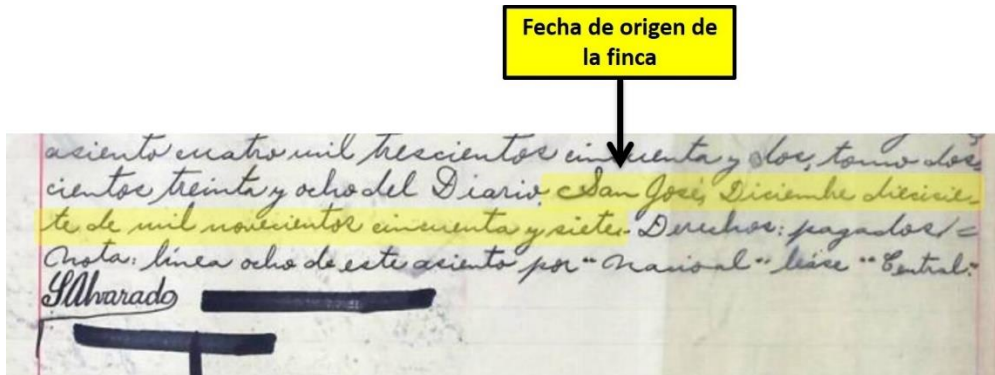 Fecha de origen de
la finca
asiento cuatro mil trescientos cincuenta y dos, tomo dos
cientos treinta y ocho del Diario. San José, Diciembre diecisie-
te de mil novecientos cincuenta y siete.- Derechos: pagados/=
Nota: línea ocho de este asiento por "Nacional" léase "Central."
SAlvarado